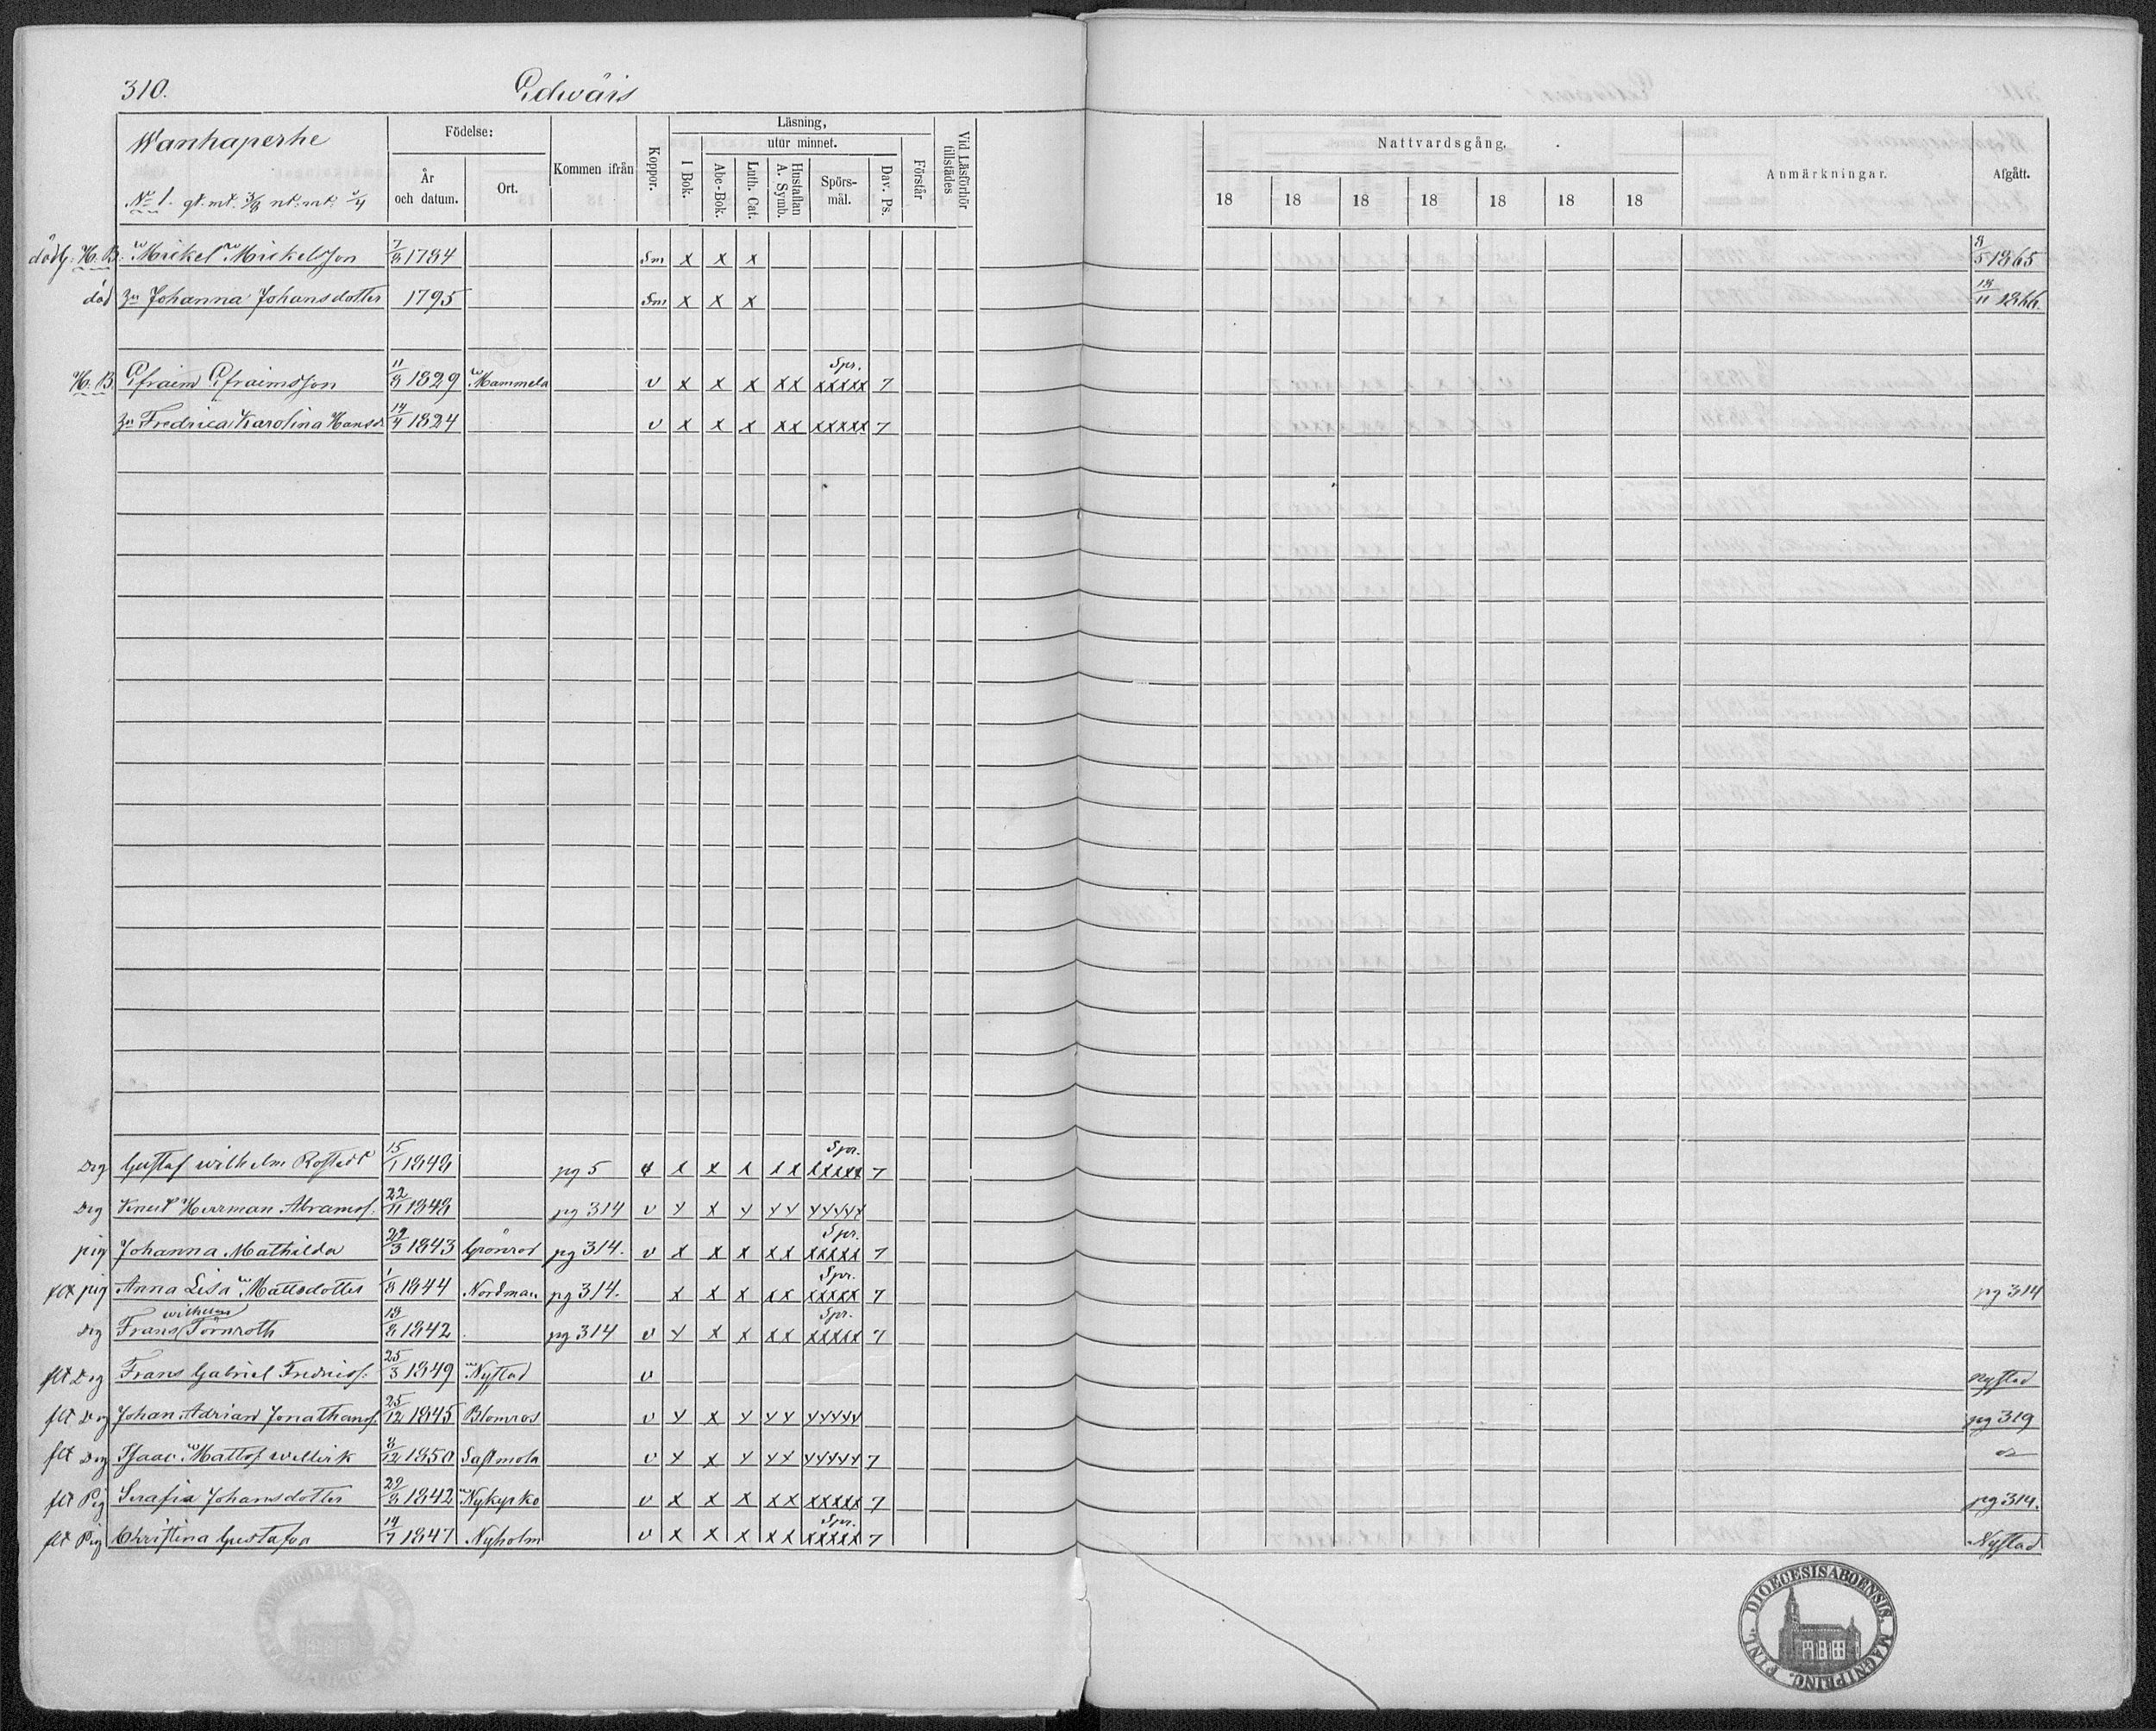 310.
Edväis
Wanhaperhe
No 1.
Födelse:
År och datum.
Ort.
Kommen ifrån
Koppor.
Läsning,
I Bok.
utur minnet.
Abc-Bok.
Luth. Cat.
Hustaflan A. Symb.
Spörsmål.
Dav. Ps.
Förstår
Vid Läsförhör tillstädes
Nattvardsgång.
18 18 18 18 18 18 18
Anmärkningar.
Afgått.
H. B. Mickel Mickelsson 7/8 1784 Sm x x x 8/5 1865
död Johanna Johansdotter 1795 Sm x x x 18/11 1866.
Spr.
H. B. Efraim Efraimsson 11/9 1829 Mammela v x x x xx xxxxx 7
Fredrica Karolina Hansd 14/4 1824 v x x x xx xxxxx 7
Spr.
Drg Gustaf Wilhelm Rostedt 15/1 1848 pg 5 v x x x xx xxxxx 7
Drg Knut Herrman Abramss. 22/11 1848 pg 314 v x x x xx xxxxx
Spr.
pig Johanna Mathilda 29/3 1843 Grönros pg 314. v x x x xx xxxxx 7
Spr.
flt pig Anna Lisa Mattsdotter 1/8 1844 Nordman pg 314. x x x xx xxxxx 7 pg 314
Spr.
drg Frans Wilhelm Törnroth 18/8 1842 pg 314 v x x x xx xxxxx 7
flt Drg Frans Gabriel Fredricss. 25/3 1849 Nystad v Nystad
flt Drg Johan Adrian Jonathanss. 25/12 1845 Blomros v x x x xx xxxxx pg 319
flt Drg Isaac Mattss. 8/12 1850 Sastmola v x x x xx xxxxx 7
flt Pig Serafia Johansdotter 29/8 1842 Nykyrko v x x x xx xxxxx 7 pg 314.
Spr.
flt Pig Christina Gustafva 14/7 1847 Nyholm v x x x xx xxxxx 7 Nystad
DIOECESIS ABOENSIS. MAGNI PRINC. FINL.